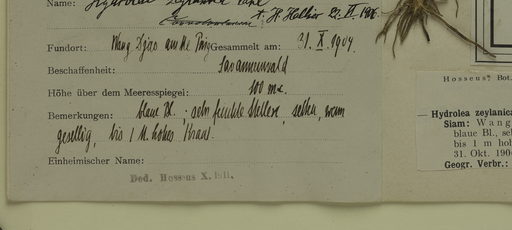 Name: Hydrolea zeylanica Vahl
H. Hallier
Fundort: Wang Djao am Me Ping Gesammelt am: 31. X. 1904
Beschaffenheit: Savannenwald
Höhe über dem Meeresspiegel: 100 m
Bemerkungen: blaue Bl., sehr feuchte Stellen, selten, wenn
gesellig, bis 1 M. hohes Kraut.
Einheimischer Name:
Ded. Hosseus X. 1911.
Hosseus: Bot.
— Hydrolea zeylanica
Siam: Wang
blaue Bl., se
bis 1 m hoh
31. Okt. 190
Geogr. Verbr.: